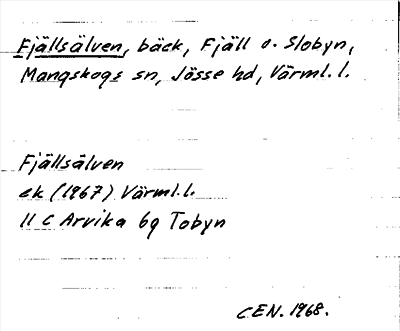 Fjällsälven, bäck, Fjäll o. Slobyn,
Mangskogs sn, Jösse hd, Värml. l.
Fjällsälven
ek (1967) Värml. l.
11 C Arvika 6g Tobyn
CEN. 1968.